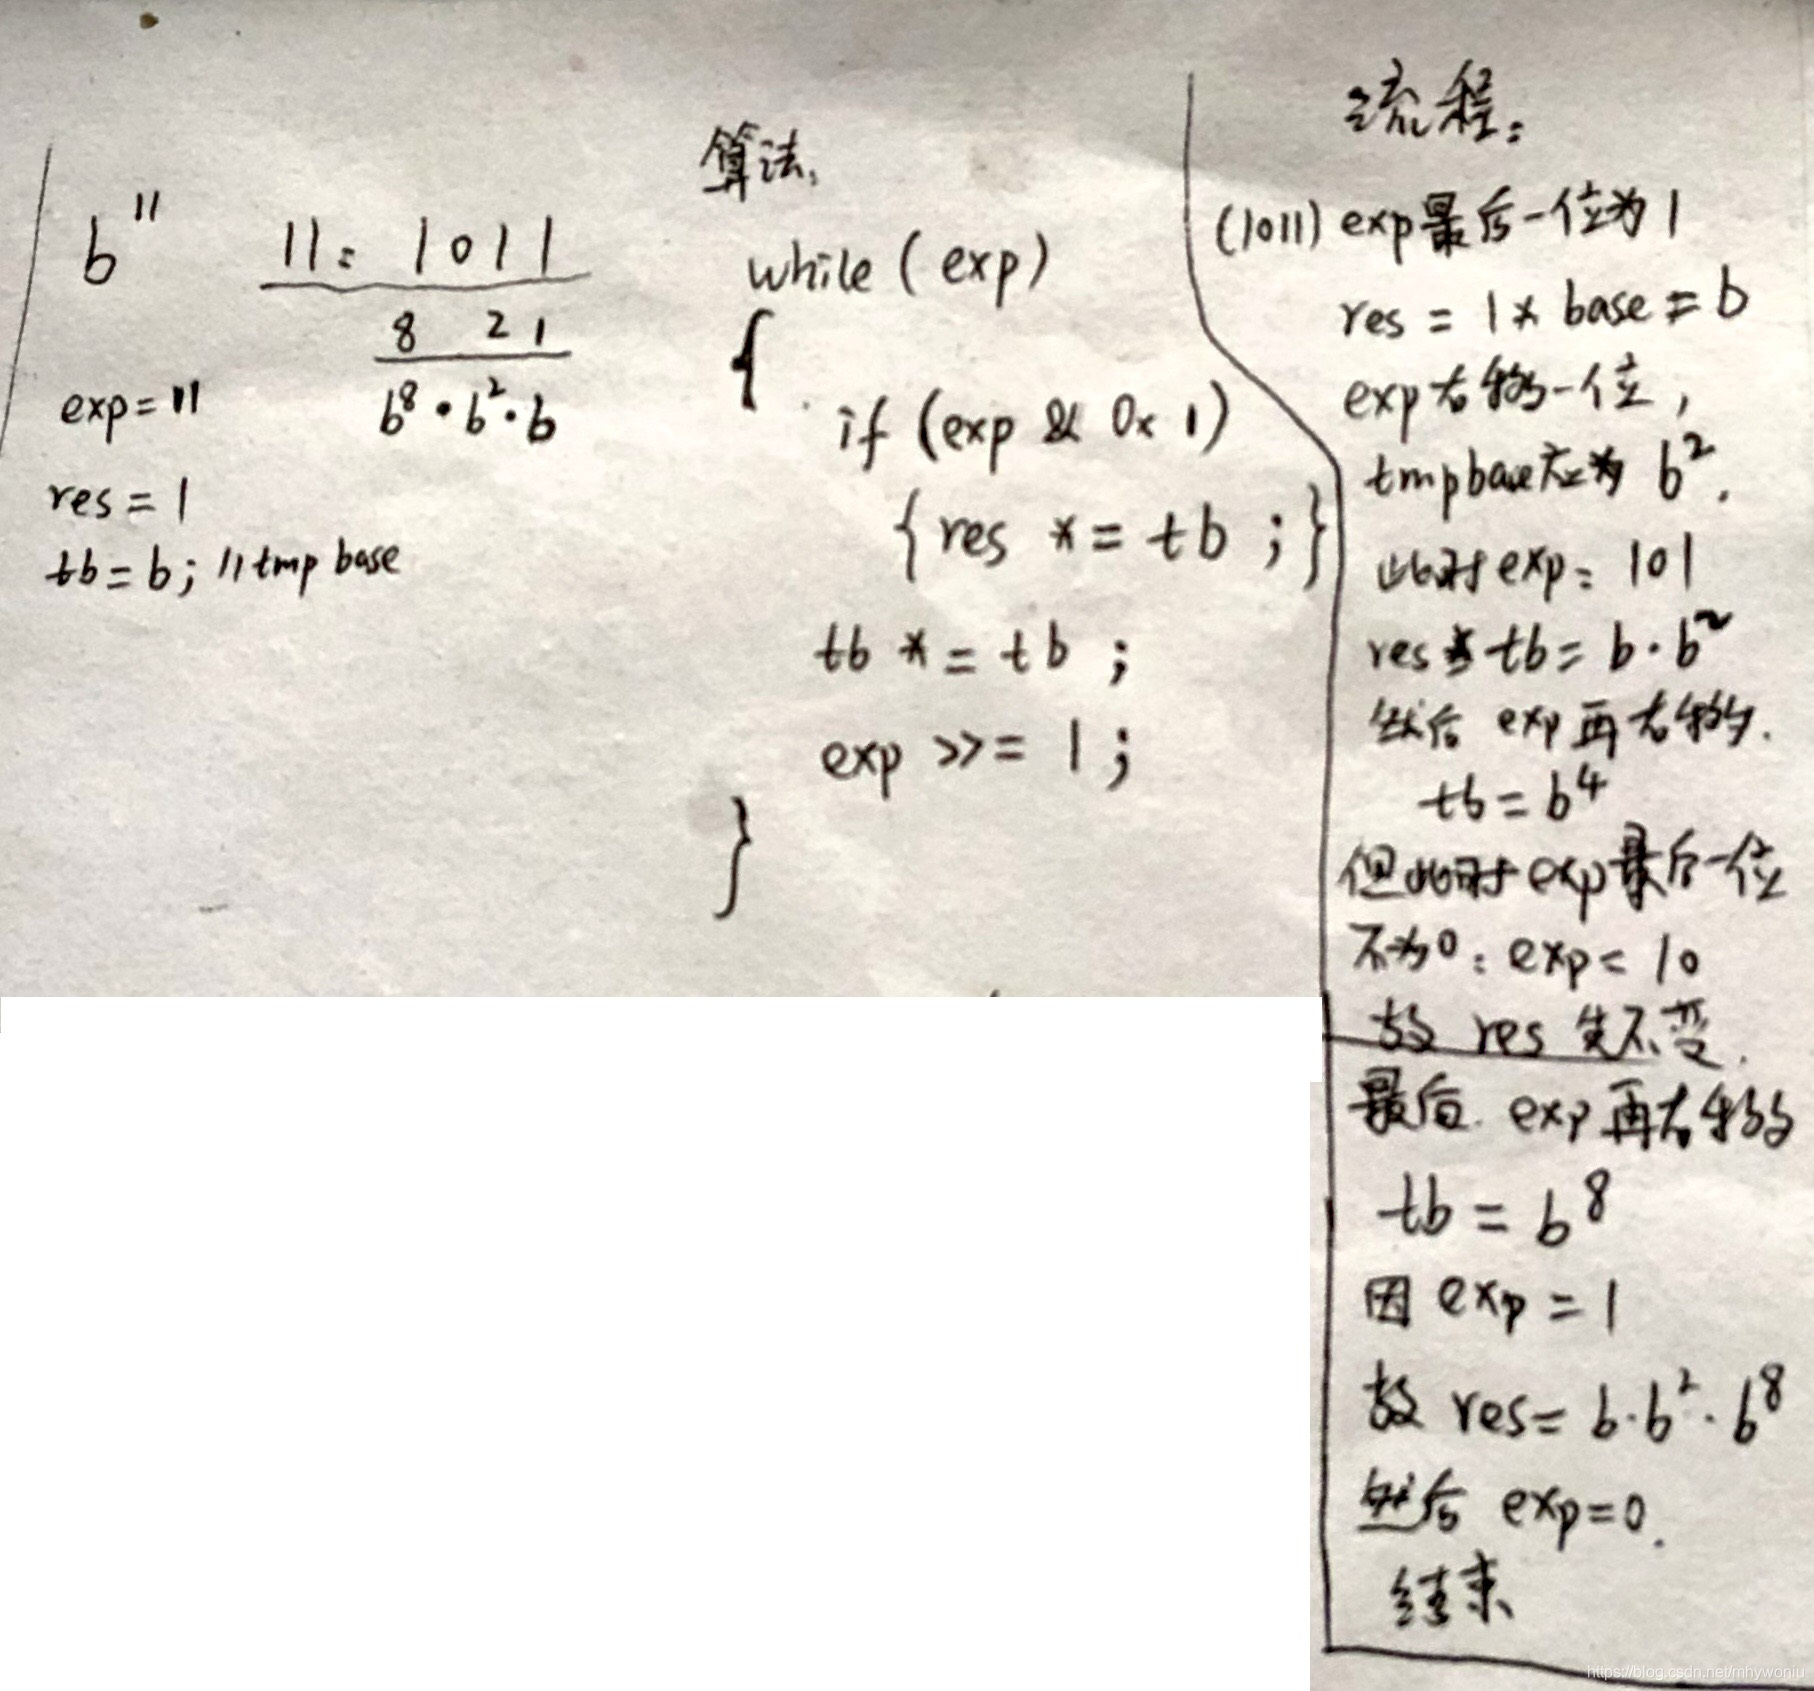 b¹¹
11: 1011
8 2 1
b⁸·b²·b
exp=11
res=1
tb=b; //tmp base
算法:
while(exp)
{
if (exp & 0x1)
{res *= tb ;}
tb *= tb ;
exp >>= 1 ;
}
流程:
(1011) exp最后一位为1
res = 1* base = b
exp右移一位,
tmpbase应为 b².
此时exp=101
res*tb= b·b²
然后 exp再右移.
tb=b⁴
但此时exp最后一位
不为0: exp= 10
故 res 先不变.
最后. exp再右移
tb = b⁸
因 exp = 1
故 res= b·b²·b⁸
然后 exp=0.
结束
https://blog.csdn.net/mhywoniu